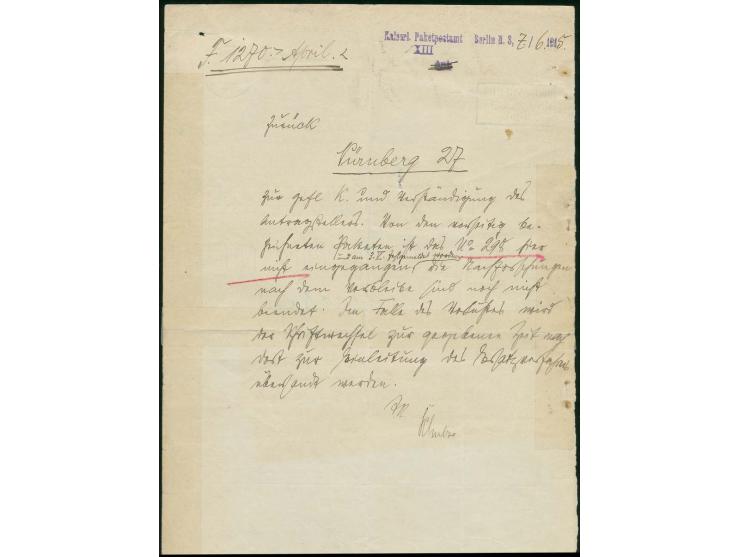 F. 1270. April.
Kaiserl. Paketpostamt Berlin N. 3, 7/6. 1915.
XIII
zurück
Nürnberg 27
zur gefl K. und Verständigung des
Antragstellers. Von den vorseitig be-
zeichneten Paketen ist das No 298 hier
und am 3.V. festgestellt worden
nicht eingegangen, die Nachforschungen
nach dem Verbleibe sind noch nicht
beendet. Im Falle des Verlustes wird
der Schriftwechsel zur gegebenen Zeit nach
dort zur Einleitung des Ersatzverfahrens
übersandt werden.